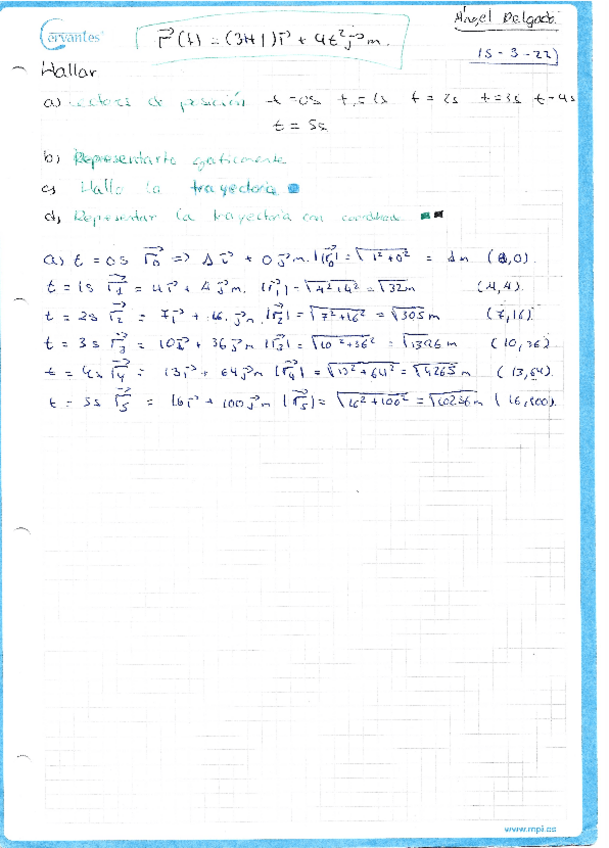 Cervantes
Ángel Delgado.
r⃗(t) = (3t+1)i⃗ + 4t²j⃗ m.
15-3-22
Hallar
a) vectores de posición t=0s t=1s t=2s t=3s t=4s
t = 5s
b) Representarlo gráficamente
c) Halla la trayectoria
d) Representar la trayectoria con coordenadas
a) t = 0s r⃗0 => 1i⃗ + 0j⃗ m. |r⃗0| = √1²+0² = 1m (1,0).
t = 1s r⃗1 = 4i⃗ + 4j⃗ m. |r⃗1| = √4²+4² = √32 m (4,4).
t = 2s r⃗2 = 7i⃗ + 16j⃗ m. |r⃗2| = √7²+16² = √305 m (7,16).
t = 3s r⃗3 = 10i⃗ + 36j⃗ m |r⃗3| = √10²+36² = √1396 m (10,36).
t = 4s r⃗4 = 13i⃗ + 64j⃗ m |r⃗4| = √13²+64² = √4265 m (13,64).
t = 5s r⃗5 = 16i⃗ + 100j⃗ m |r⃗5| = √16²+100² = √10256 m (16,100).
www.mpi.es